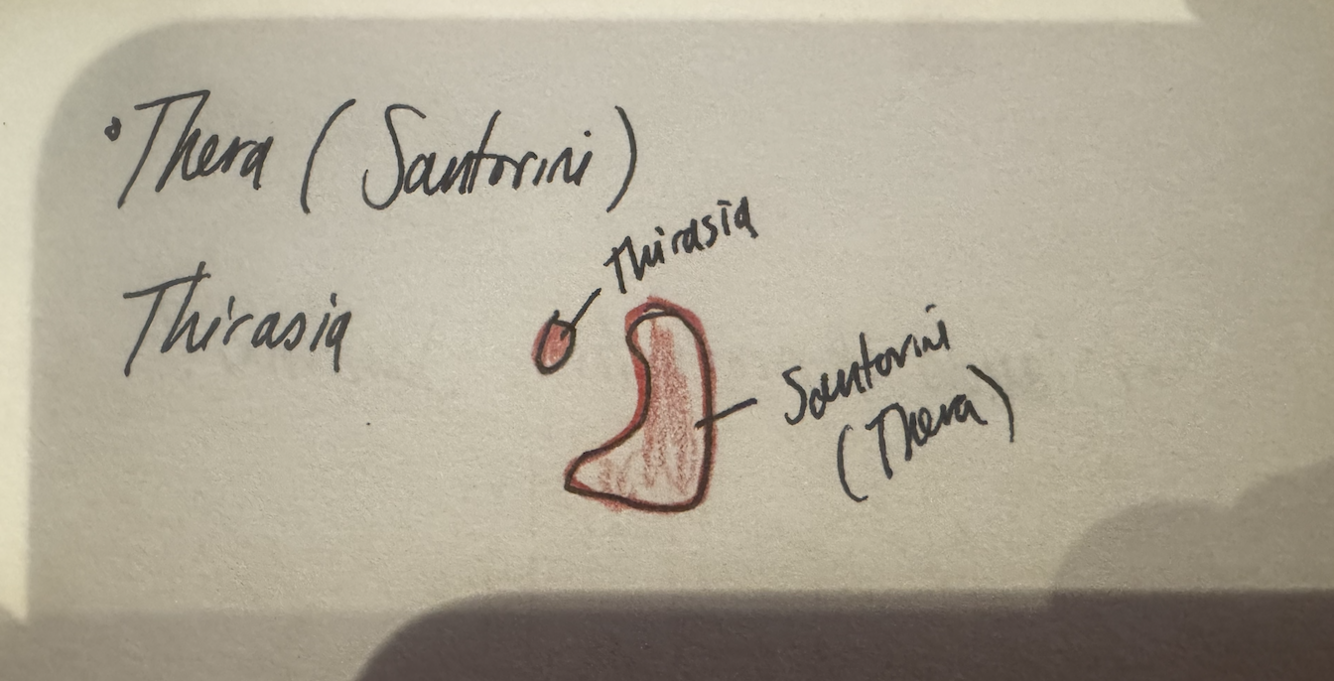 Thera (Santorini)
Thirasia
Thirasia
Santorini
(Thera)